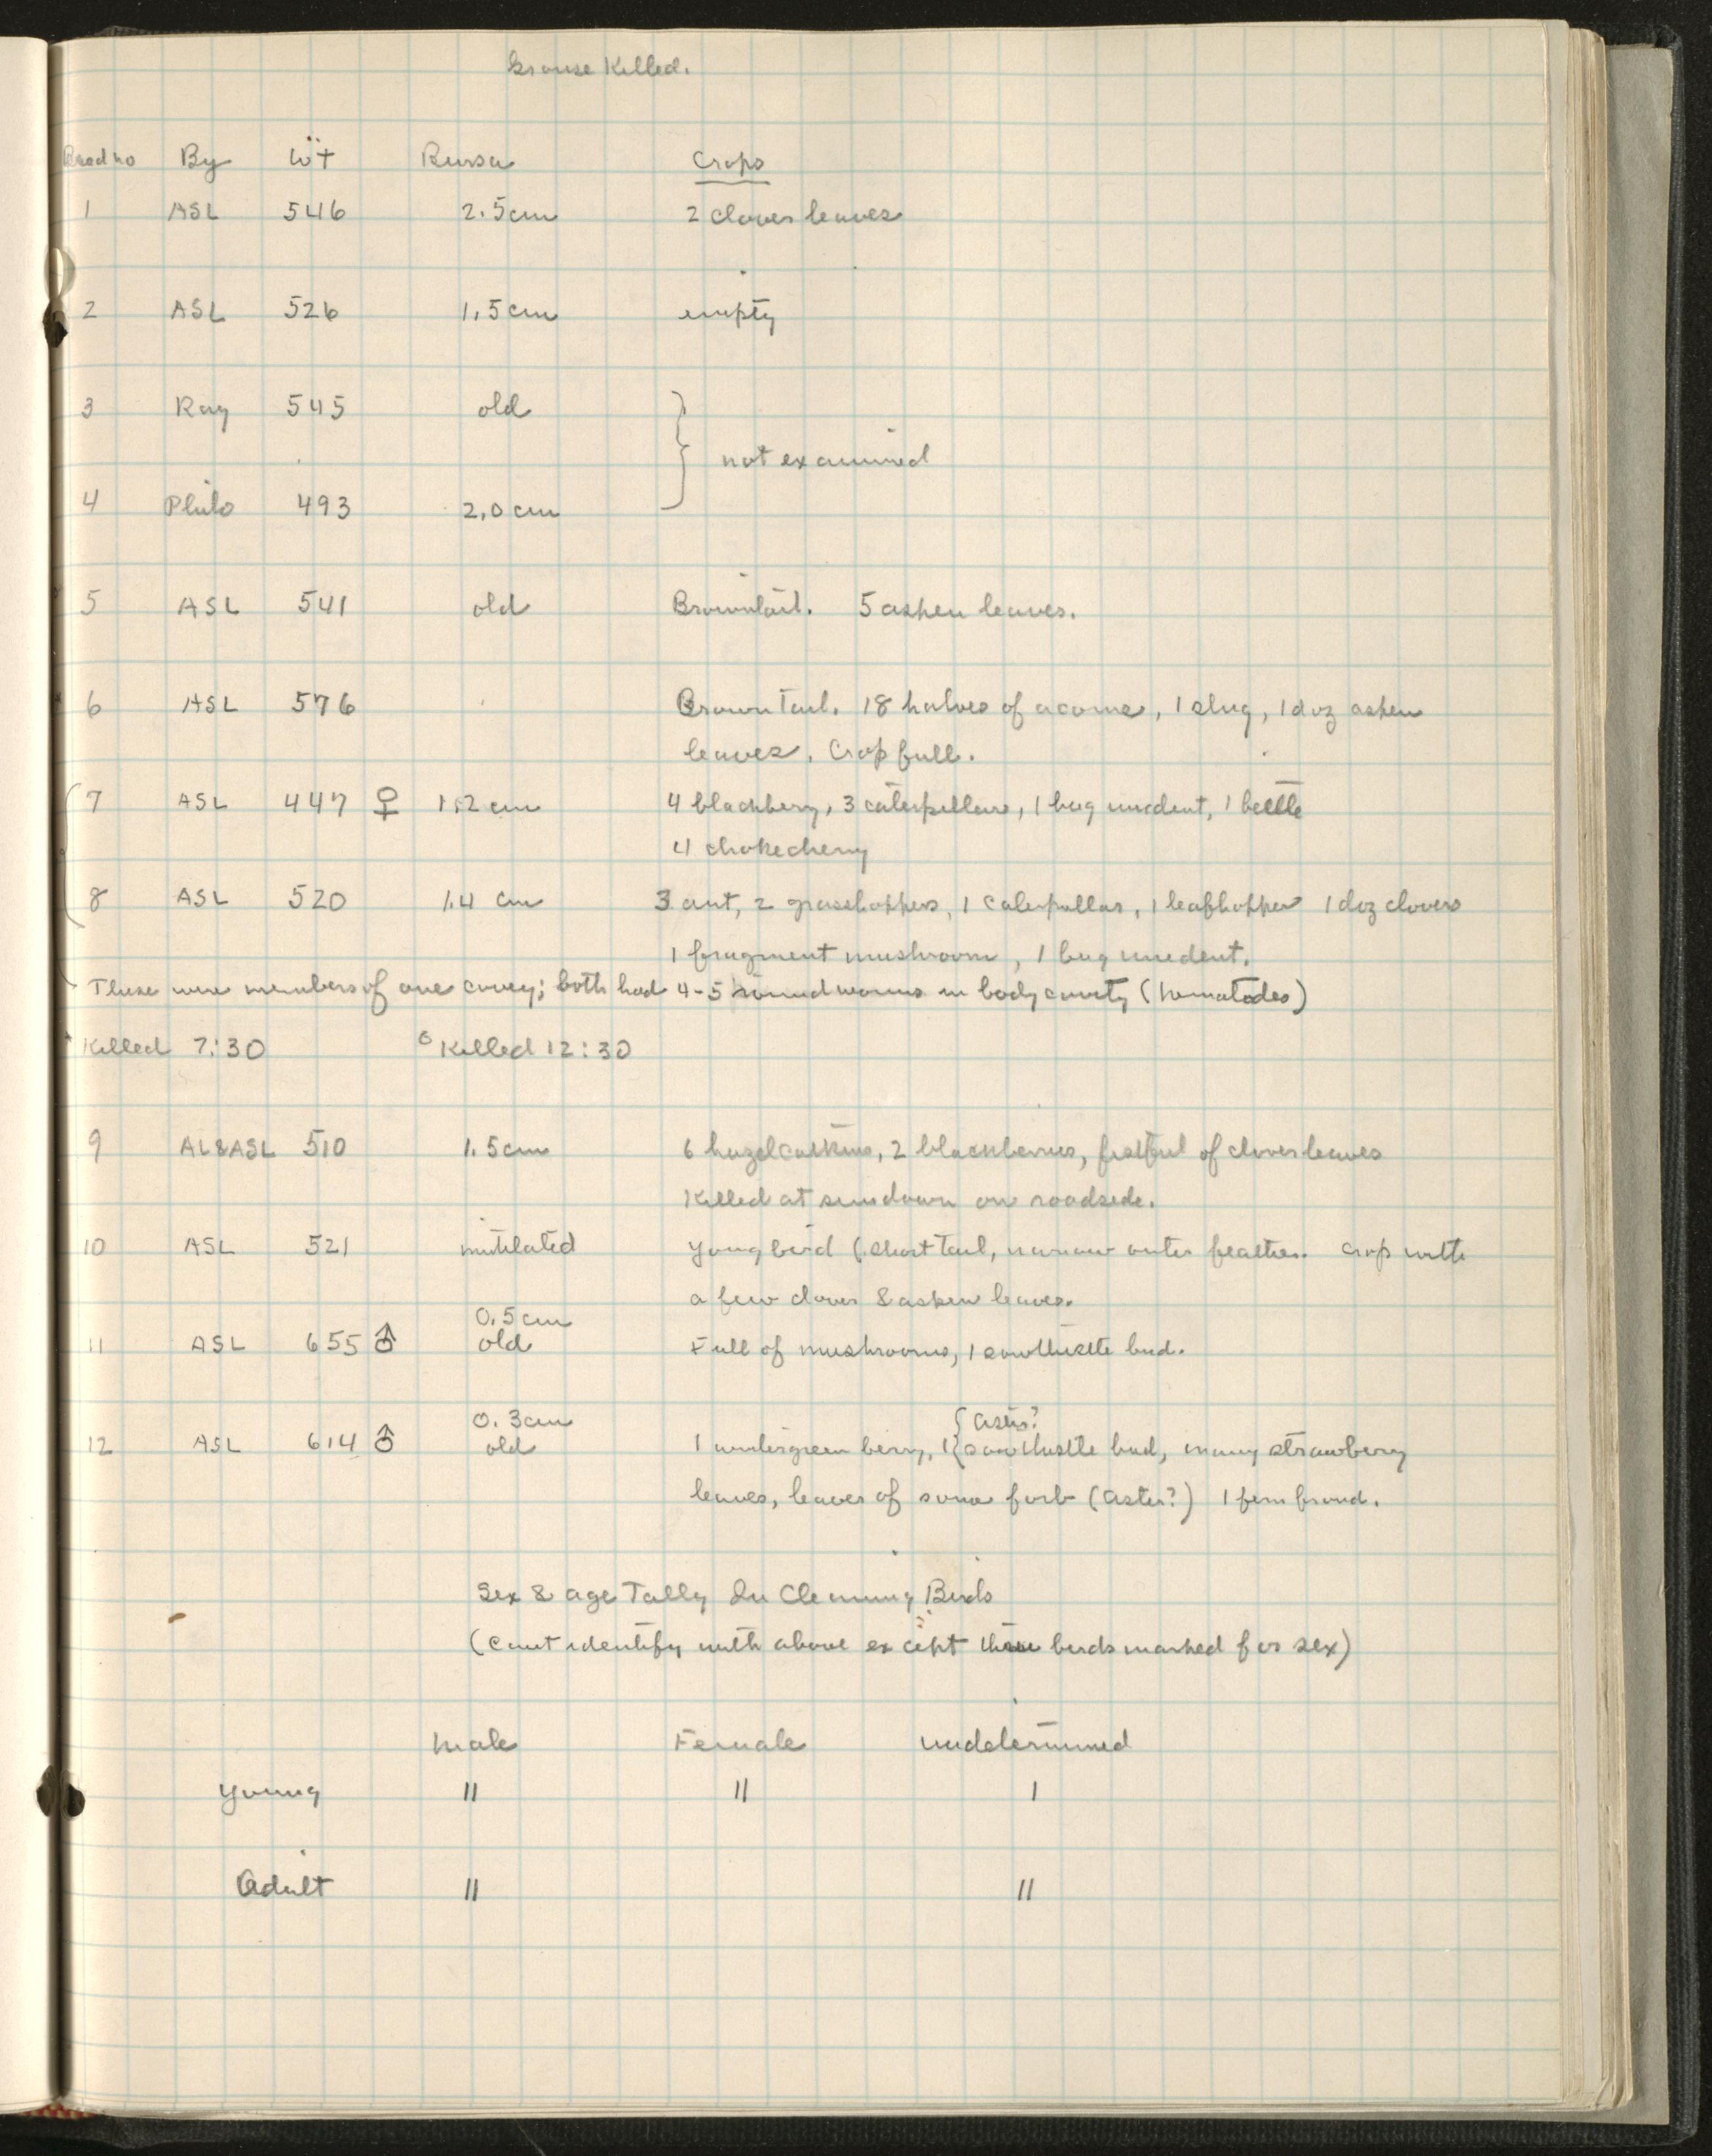 Grouse Killed.
Bird no By Wt Bursa Crops
1 ASL 546 2.5cm 2 clover leaves
2 ASL 526 1.5cm empty
3 Ray 545 old
not examined
4 Philo 493 2.0cm
5 ASL 541 old Browntail. 5 aspen leaves.
6 ASL 576 Brown Tail. 18 halves of acorns, 1 slug, 1 doz aspen
leaves. Crop full.
7 ASL 447 ♀ 1.2 cm 4 blackberry, 3 caterpillars, 1 bug unident, 1 beetle
4 chokecherry
8 ASL 520 1.4 cm 3 ant, 2 grasshoppers, 1 caterpillar, 1 leafhopper 1 doz clovers
1 fragment mushroom, 1 bug unident.
These were members of one covey; both had 4-5 roundworms in body cavity (nematodes)
Killed 7:30 Killed 12:30
9 AL&ASL 510 1.5cm 6 hazel catkins, 2 blackberries, fistful of clover leaves
Killed at sundown on roadside.
10 ASL 521 mutilated Young bird (short tail, narrow outer feather. Crop with
a few clover & aspen leaves.
0.5cm
11 ASL 655 ♂ old Full of mushrooms, 1 sowthistle bud.
0.3cm { aster?
12 ASL 614 ♂ old 1 wintergreen berry, 1 { sowthistle bud, many strawberry
leaves, leaves of some forb (aster?) 1 fern frond.
Sex & age Tally In Cleaning Birds
(Cant identify with above except three birds marked for sex)
Male Female undetermined
Young || || |
Adult || ||